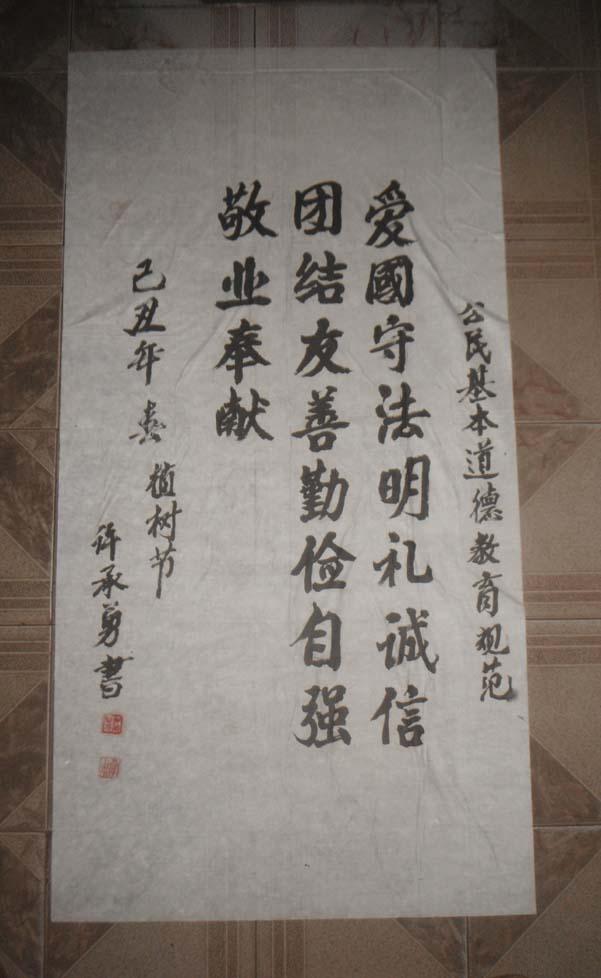 公民基本道德教育规范
爱國守法明礼诚信
团结友善勤俭自强
敬业奉献
己丑年春植树节
许承勇書